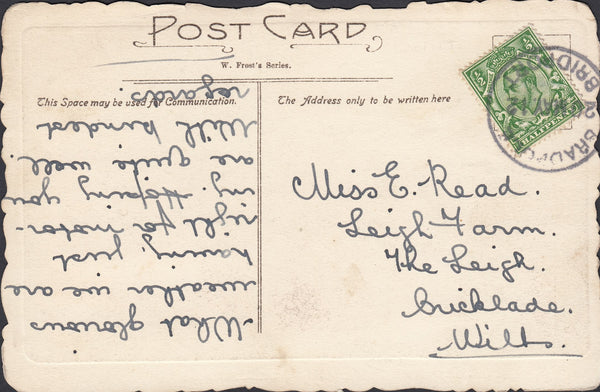 POST CARD
W. Frost's Series.
This Space may be used for Communication.
The Address only to be written here
What glorious
weather we are
having, just
right for motor-
ing. Hoping you
are quite well.
With kindest
regards
Miss E. Read.
Leigh Farm.
The Leigh.
Cricklade.
Wilts.
HALFPENNY
BRADFORD